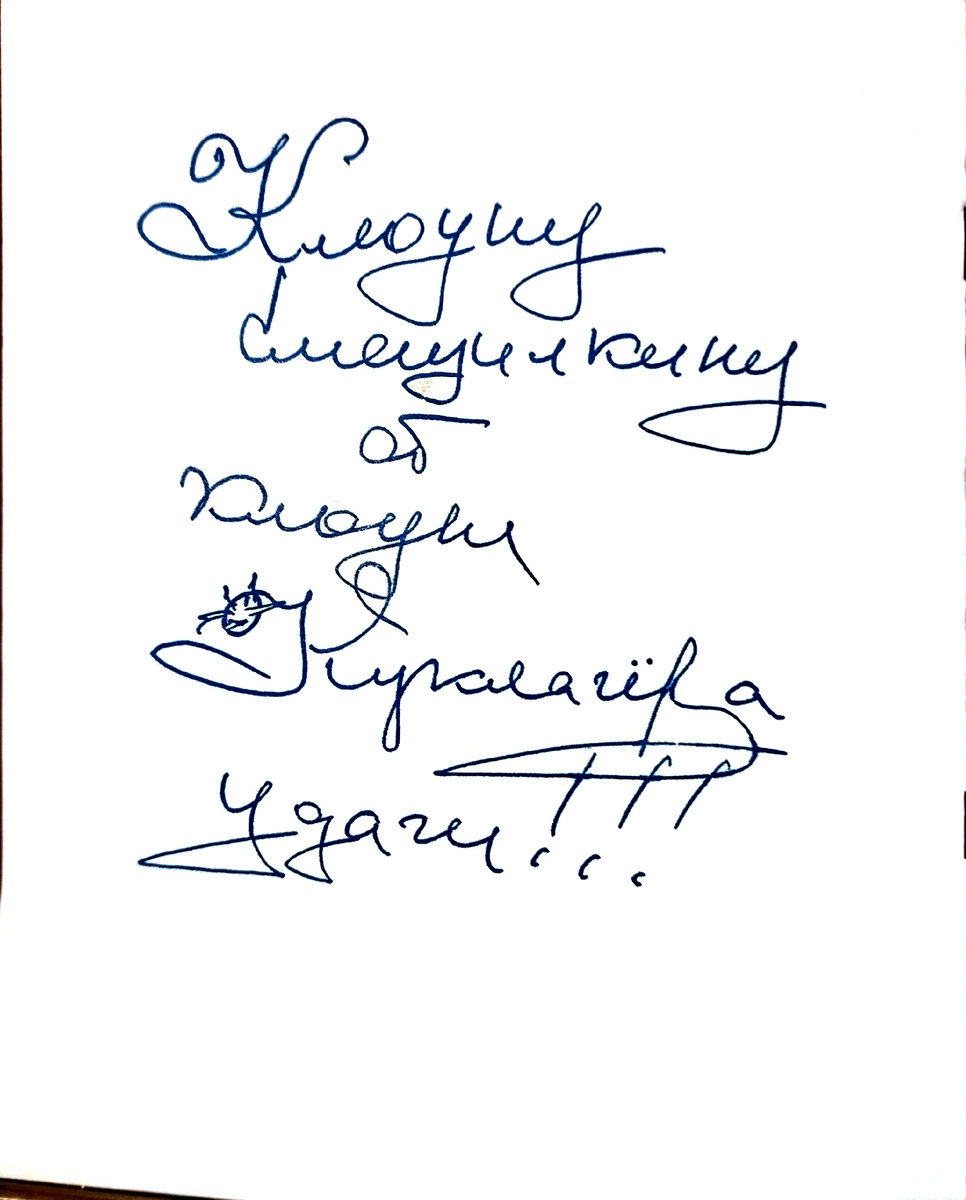 Клоуну
Смешилкину
от
Клоуна
Куклачёва
Удачи!!!